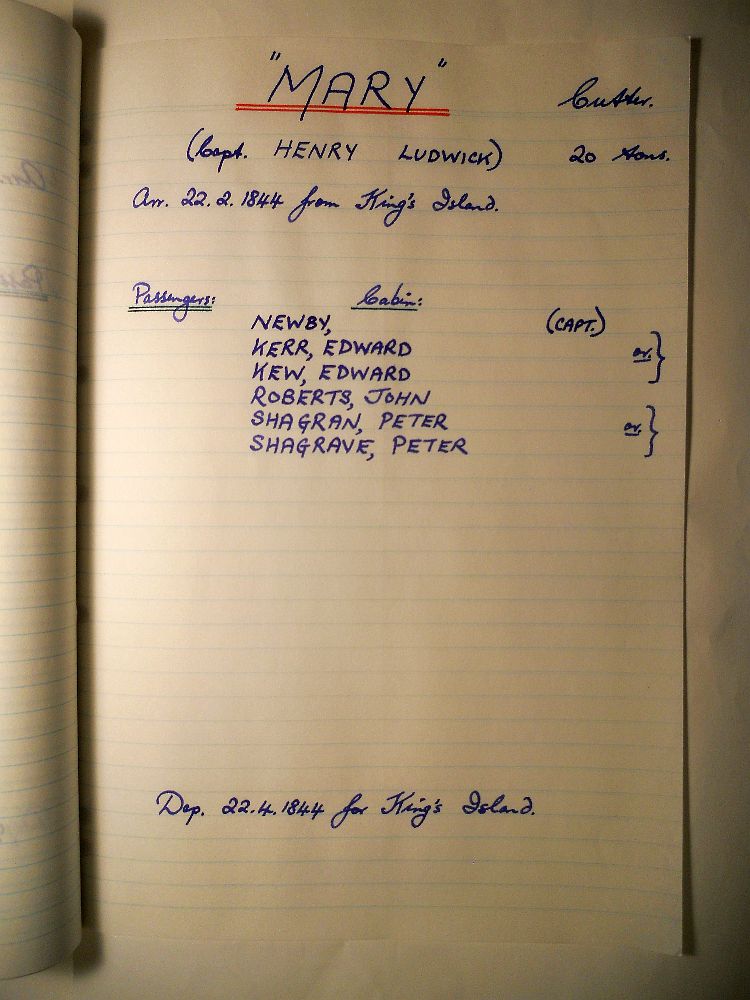 "MARY" Cutter.
(Capt. HENRY LUDWICK) 20 tons.
Arr. 22.2.1844 from King's Island.
Passengers: Cabin:
NEWBY, (CAPT.)
KERR, EDWARD or. }
KEW, EDWARD
ROBERTS, JOHN
SHAGRAN, PETER or. }
SHAGRAVE, PETER
Dep. 22.4.1844 for King's Island.